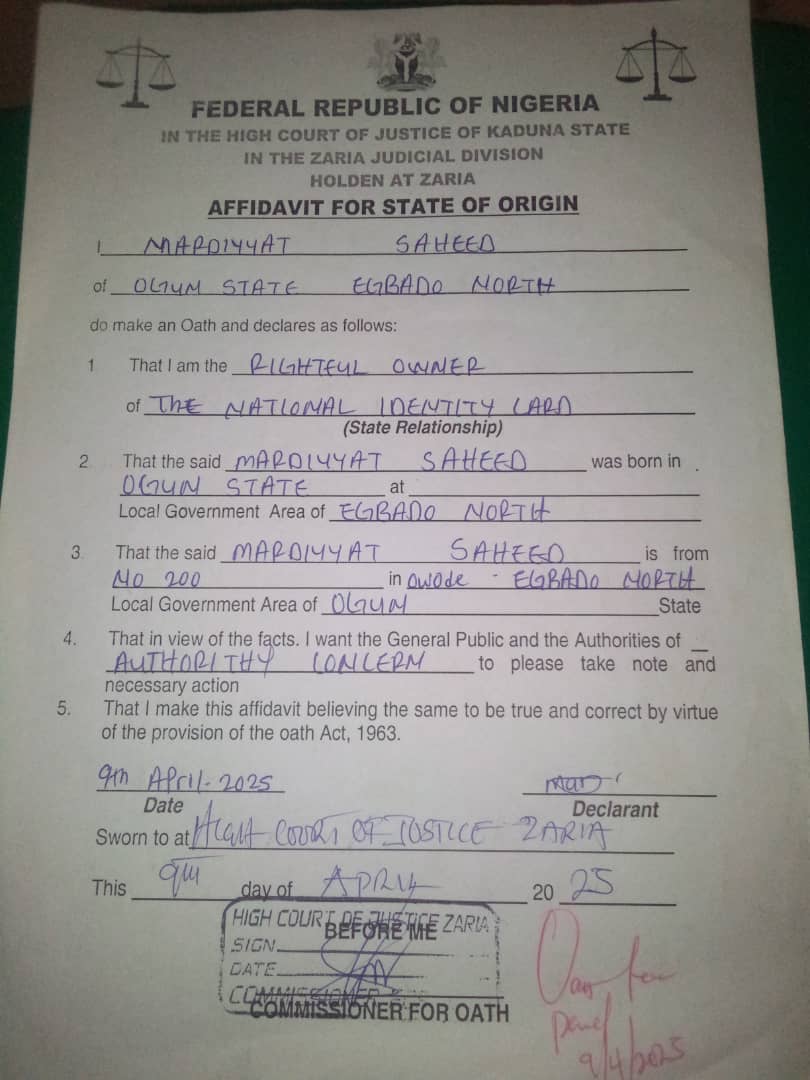 FEDERAL REPUBLIC OF NIGERIA
IN THE HIGH COURT OF JUSTICE OF KADUNA STATE
IN THE ZARIA JUDICIAL DIVISION
HOLDEN AT ZARIA
AFFIDAVIT FOR STATE OF ORIGIN
I MARDIYYAT SAHEED
of OGUN STATE EGBADO NORTH
do make an Oath and declares as follows:
1 That I am the RIGHTFUL OWNER
of THE NATIONAL IDENTITY CARD
(State Relationship)
2. That the said MARDIYYAT SAHEED was born in
OGUN STATE at
Local Government Area of EGBADO NORTH
3. That the said MARDIYYAT SAHEED is from
NO 200 in owode - EGBADO NORTH
Local Government Area of OGUN State
4. That in view of the facts. I want the General Public and the Authorities of
AUTHORITHY CONCERN to please take note and
necessary action
5. That I make this affidavit believing the same to be true and correct by virtue
of the provision of the oath Act, 1963.
9th April - 2025
Date Declarant
Sworn to at HIGH COURT OF JUSTICE ZARIA
This 9th day of APRIL 20 25
HIGH COURT OF JUSTICE ZARIA
BEFORE ME
SIGN
DATE
COMMISSIONER
COMMISSIONER FOR OATH
9/4/2025